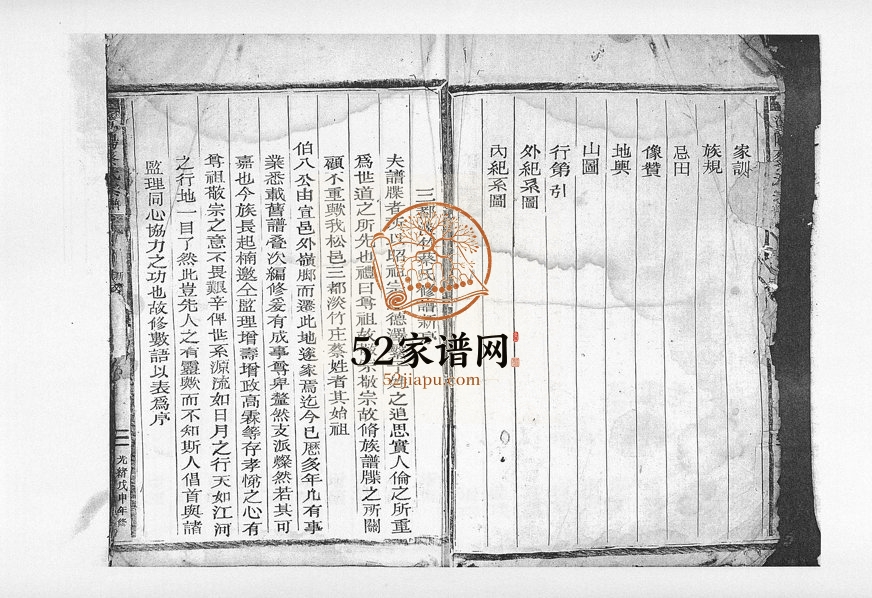 家訓
族規
忌田
像贊
地輿
山圖
行第引
外紀系圖
內紀系圖
三都淡竹蔡氏修譜新序
夫譜牒者所以昭祖宗德澤之追思實人倫之所重
爲世道之所先也禮曰尊祖故敬宗敬宗故脩族譜牒之所關
顧不重歟我松邑三都淡竹庄蔡姓者其始祖
伯八公由宣邑外嶺脚而遷此地遂家焉迄今已歷多年凡有事
業悉載舊譜叠次編修爰有成事尊卑釐然支派燦然若其可
嘉也今族長起楠邀仝監理增壽增政高霖等存孝悌之心有
尊祖敬宗之意不畏艱辛俾世系源流如日月之行天如江河
之行地一目了然此豈先人之有靈歟而不知斯人倡首與諸
監理同心協力之功也故修數語以表爲序
二 光緒戊申年修
52家谱网
52jiapu.com